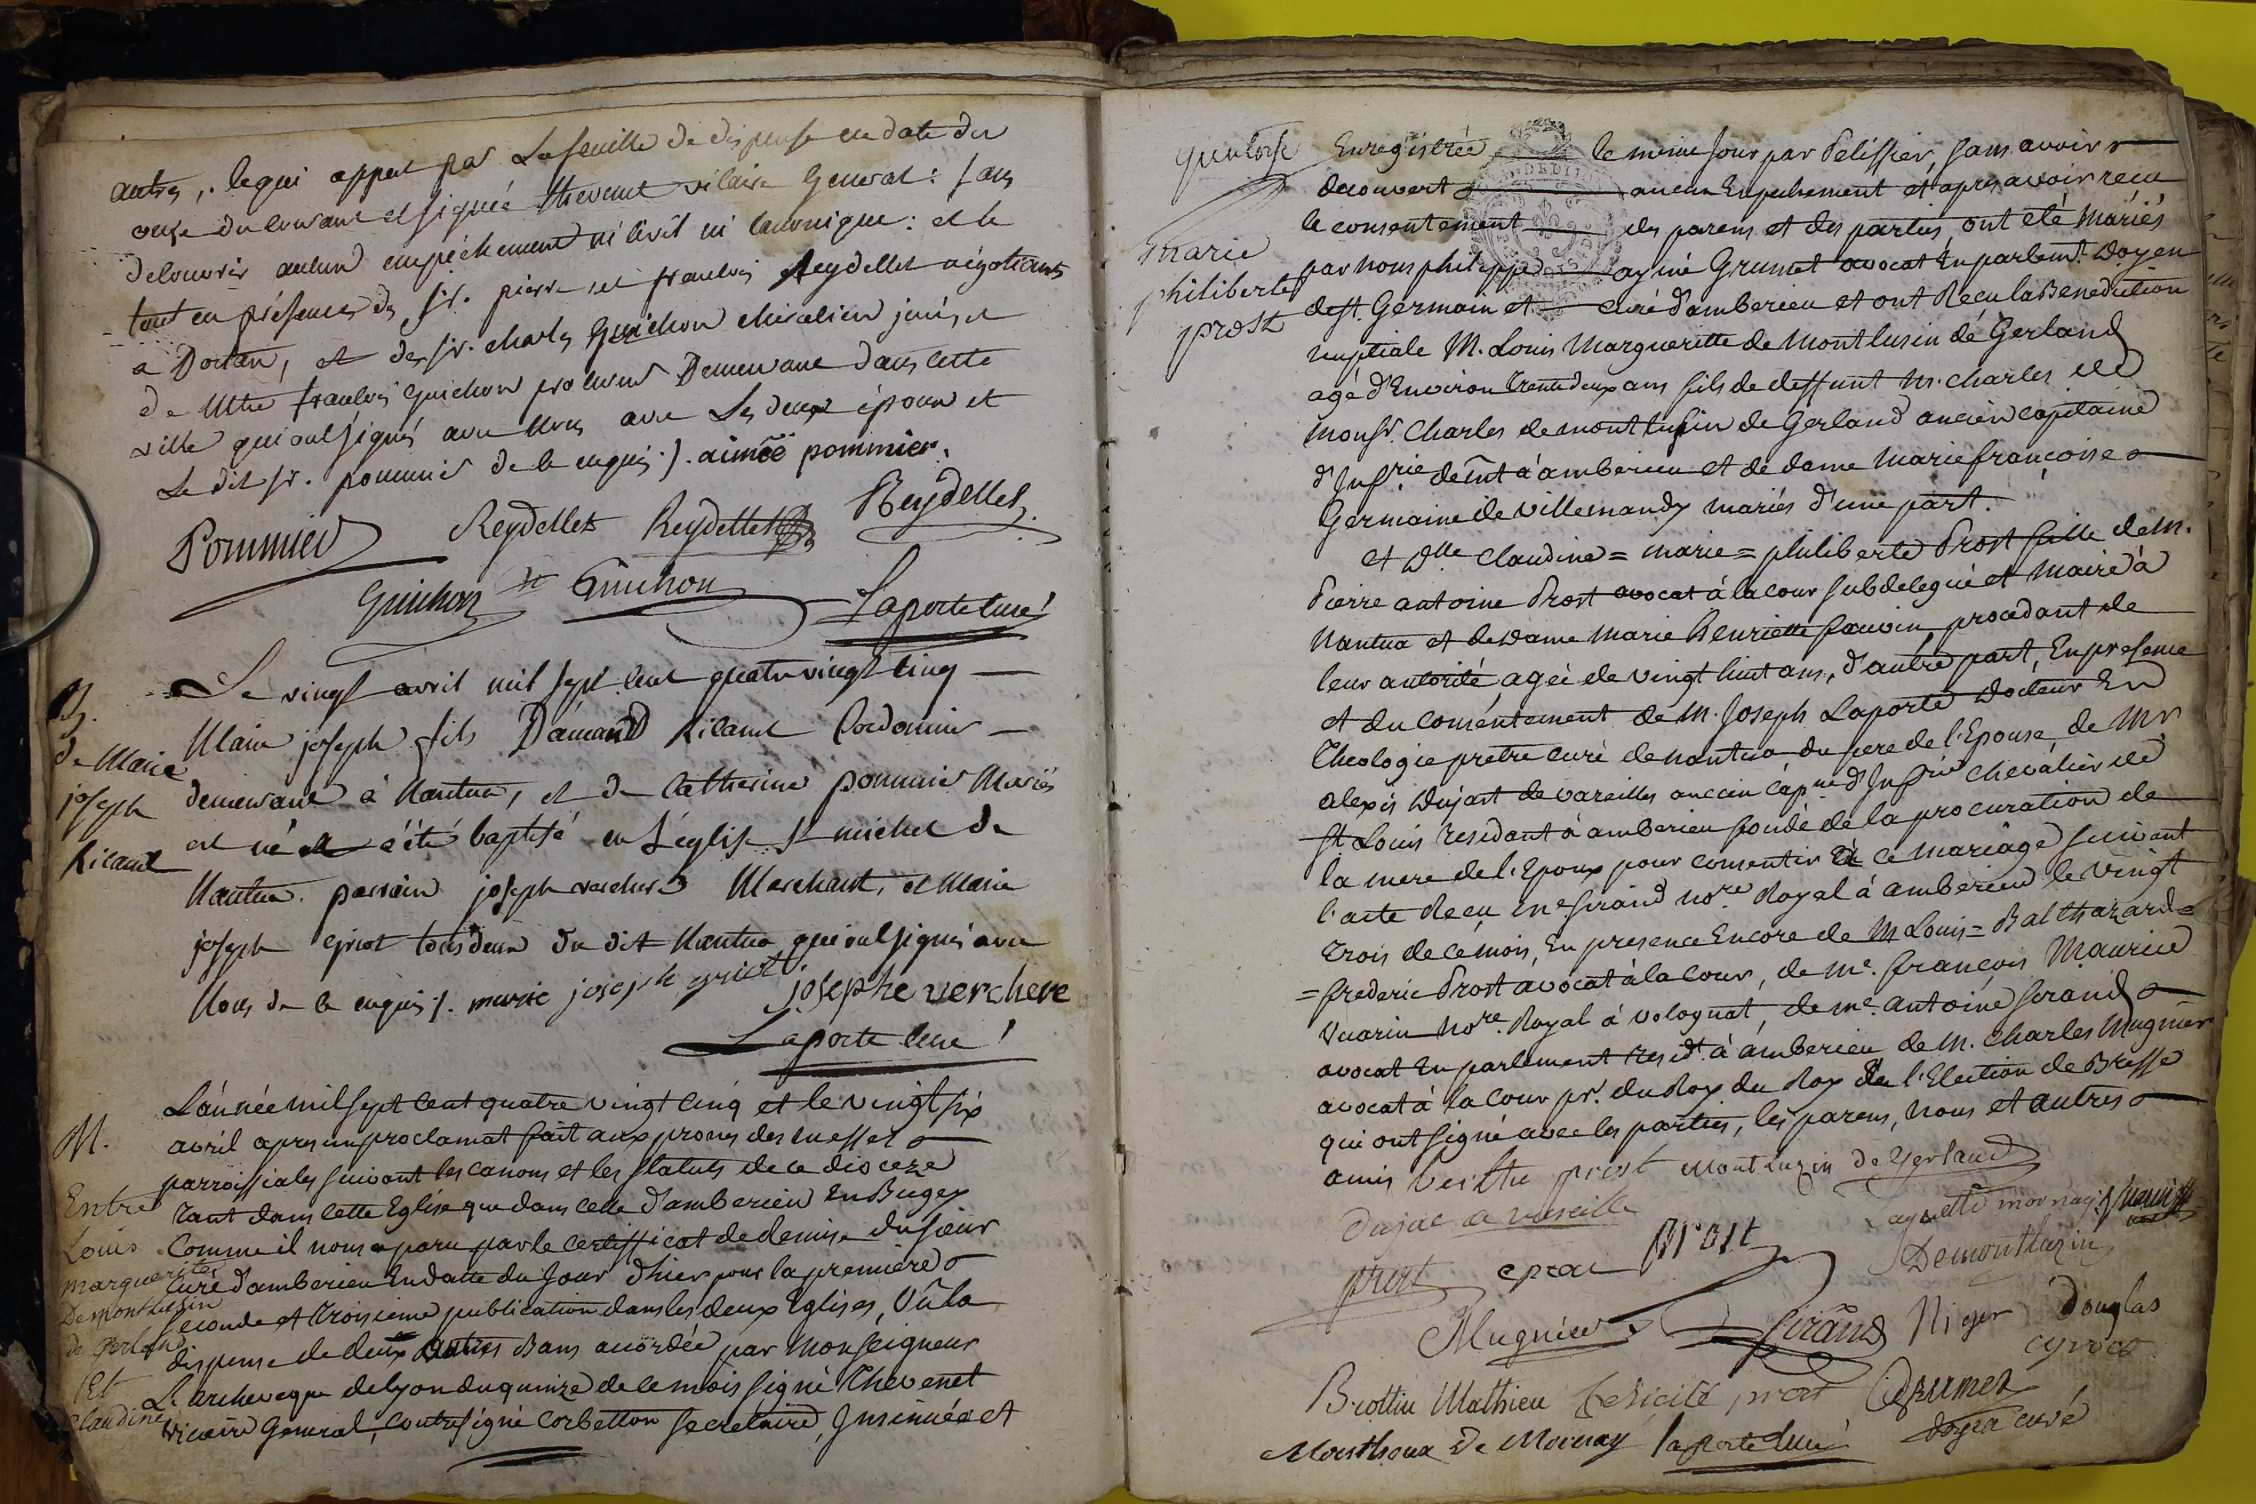 autres, ce qui appert par La feuille de dispense en date du
onze du courant et signée thevenet vicaire General: sans
decouvrir aucun empéchement ni Civil ni Canonique: et le
tout en présence des sr. pierre et francois Reydellet négotians
a Dortan, et des sr. charles Guichon chirurgien juré, et
de Mtre francois Guichon procureur Demeurant dans cette
ville qui ont signés avec Nous avec Les deux époux et
Le dit sr. pommier de ce enquis ./. aimée pommier.
Pommier Reydellet Reydellet Reydellet
Guichon Guichon Laporte curé
B.
de Marie
joseph
Ricand
Le vingt avril mil sept cent quatre vingt cinq
Marie joseph fils D'amand Ricand Cordonnier
demeurant à Nantua, et de Catherine pommier Mariés
est né et a été baptisé en L'église St michel de
Nantua. parrain joseph verchere Marchand, et Marie
joseph griot tous deux du dit Nantua qui ont signés avec
Nous de ce enquis ./. marie joseph griot
josephe verchere
Laporte curé
M.
Entre
Louis
marguerite
Demontlusin
de Gerland
Et
Claudine
L'année mil sept cent quatre vingt cinq et le vingt six
avril apres un proclamat fait aux prones des messes
parroissiales suivant les canons et les statuts de ce dioceze
tant dans cette Eglise que dans celle d'amberieu En Bugey
Comme il nous a paru par le certifficat de demise du sieur
curé d'amberieu En datte du Jour d'hier pour la premiere
seconde et troisieme publication dans les deux Eglises, Vû la
dispense de deux autres Bans accordée par Monseigneur
L'archeveque de Lyon du quinze de ce mois signé Thevenet
vicaire General, contresigné Corbetton secretaire, Insinuée et
marie
philiberte
prost
Enregistrée le meme Jour par Pelissier, sans avoir
decouvert aucun Empechement et apres avoir recu
le consentement des parens et des parties ont eté Mariés
par nous philippe aymé Grumet avocat En parlemt. Doyen
de St. Germain et curé d'amberieu et ont Recu la Benediction
nuptiale M. Louis Margueritte de Montlusin de Gerland
agé d'Environ trente deux ans fils de deffunt M. Charles de
Monsr. Charles de montlusin de Gerland ancien capitaine
d'Infrie demt à amberieu et de dame Marie francoise
Germaine de Villemandy mariés d'une part.
et Dlle Claudine = marie = philiberte Prost fille de M.
Pierre antoine Prost avocat à la cour subdelegué et Maire à
Nantua et de Dame Marie Henriette fauvin, procedant de
leur autorité, agée de vingt huit ans, d'autre part, En presence
et du consentement de M. Joseph Laporte Docteur En
Theologie pretre curé de Nantua du pere de l'Epouse, de Mr
Alexis Dujast de vareilles ancien capne d'Infrie Chevalier de
St Louis residant à amberieu fondé de la procuration de
la mere de l'Epoux pour consentir à ce mariage suivant
l'acte Recu Me. Girand nore. Royal à amberieu le vingt
trois de ce mois, En presence Encore de M Louis = Balthazard =
= frederic Prost avocat à la cour, de Me. francois Maurice
Vuarin Nore. Royal à volognat, de Me. antoine Girand
avocat En parlement residt. à amberieu de M. Charles Mugnier
avocat à la Cour pr. du Roy du Roy En l'Election de Bresse
qui ont signé avec les parties, les parens, nous et autres
amis prost Montluzin de Gerland
Dujac a vareille
prost prost Demontluzin
Mugnier Girand Niger Douglas
Brottin Mathieu felicité prost Grumet
doyen curé
Monthoux De Mornay laporte curé